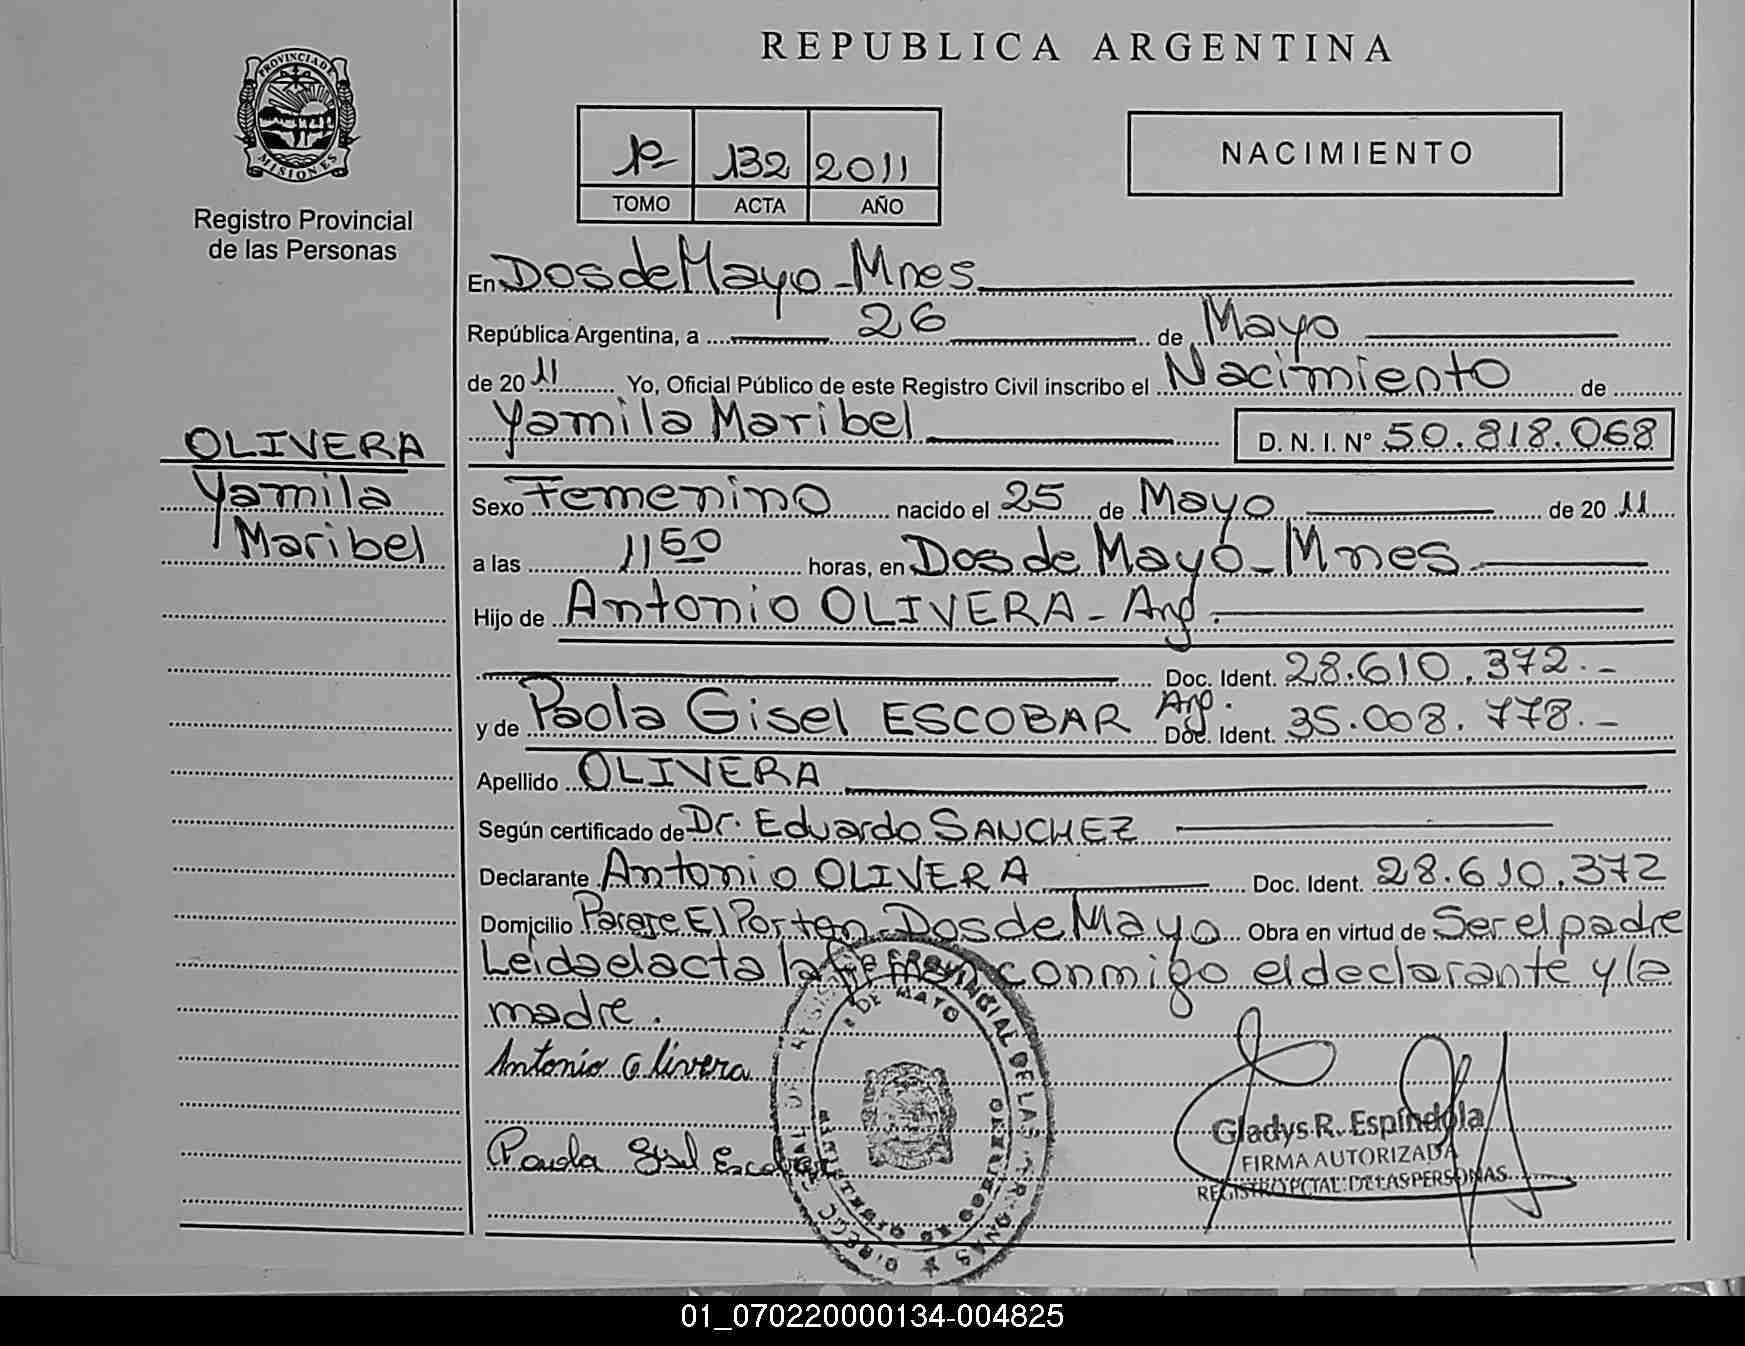 PROVINCIA DE
MISIONES
Registro Provincial
de las Personas
OLIVERA
Yamila
Maribel
REPUBLICA ARGENTINA
1º 132 2011
TOMO ACTA AÑO
NACIMIENTO
En Dos de Mayo - Mnes
República Argentina, a 26 de Mayo
de 2011 Yo, Oficial Público de este Registro Civil inscribo el Nacimiento de
Yamila Maribel D. N. I. Nº 50.818.068
Sexo Femenino nacido el 25 de Mayo de 2011
a las 1150 horas, en Dos de Mayo - Mnes
Hijo de Antonio OLIVERA - Arg.
Doc. Ident. 28.610.372.-
y de Paola Gisel ESCOBAR Arg. Doc. Ident. 35.008.778.-
Apellido OLIVERA
Según certificado de Dr. Eduardo SANCHEZ
Declarante Antonio OLIVERA Doc. Ident. 28.610.372
Domicilio Paraje El Porton Dos de Mayo Obra en virtud de Ser el padre
Leida el acta la firman conmigo el declarante y la
madre.
Antonio Olivera
Paola Gisel Escobar
Gladys R. Espíndola
FIRMA AUTORIZADA
REGISTRO PCIAL. DE LAS PERSONAS
01_070220000134-004825